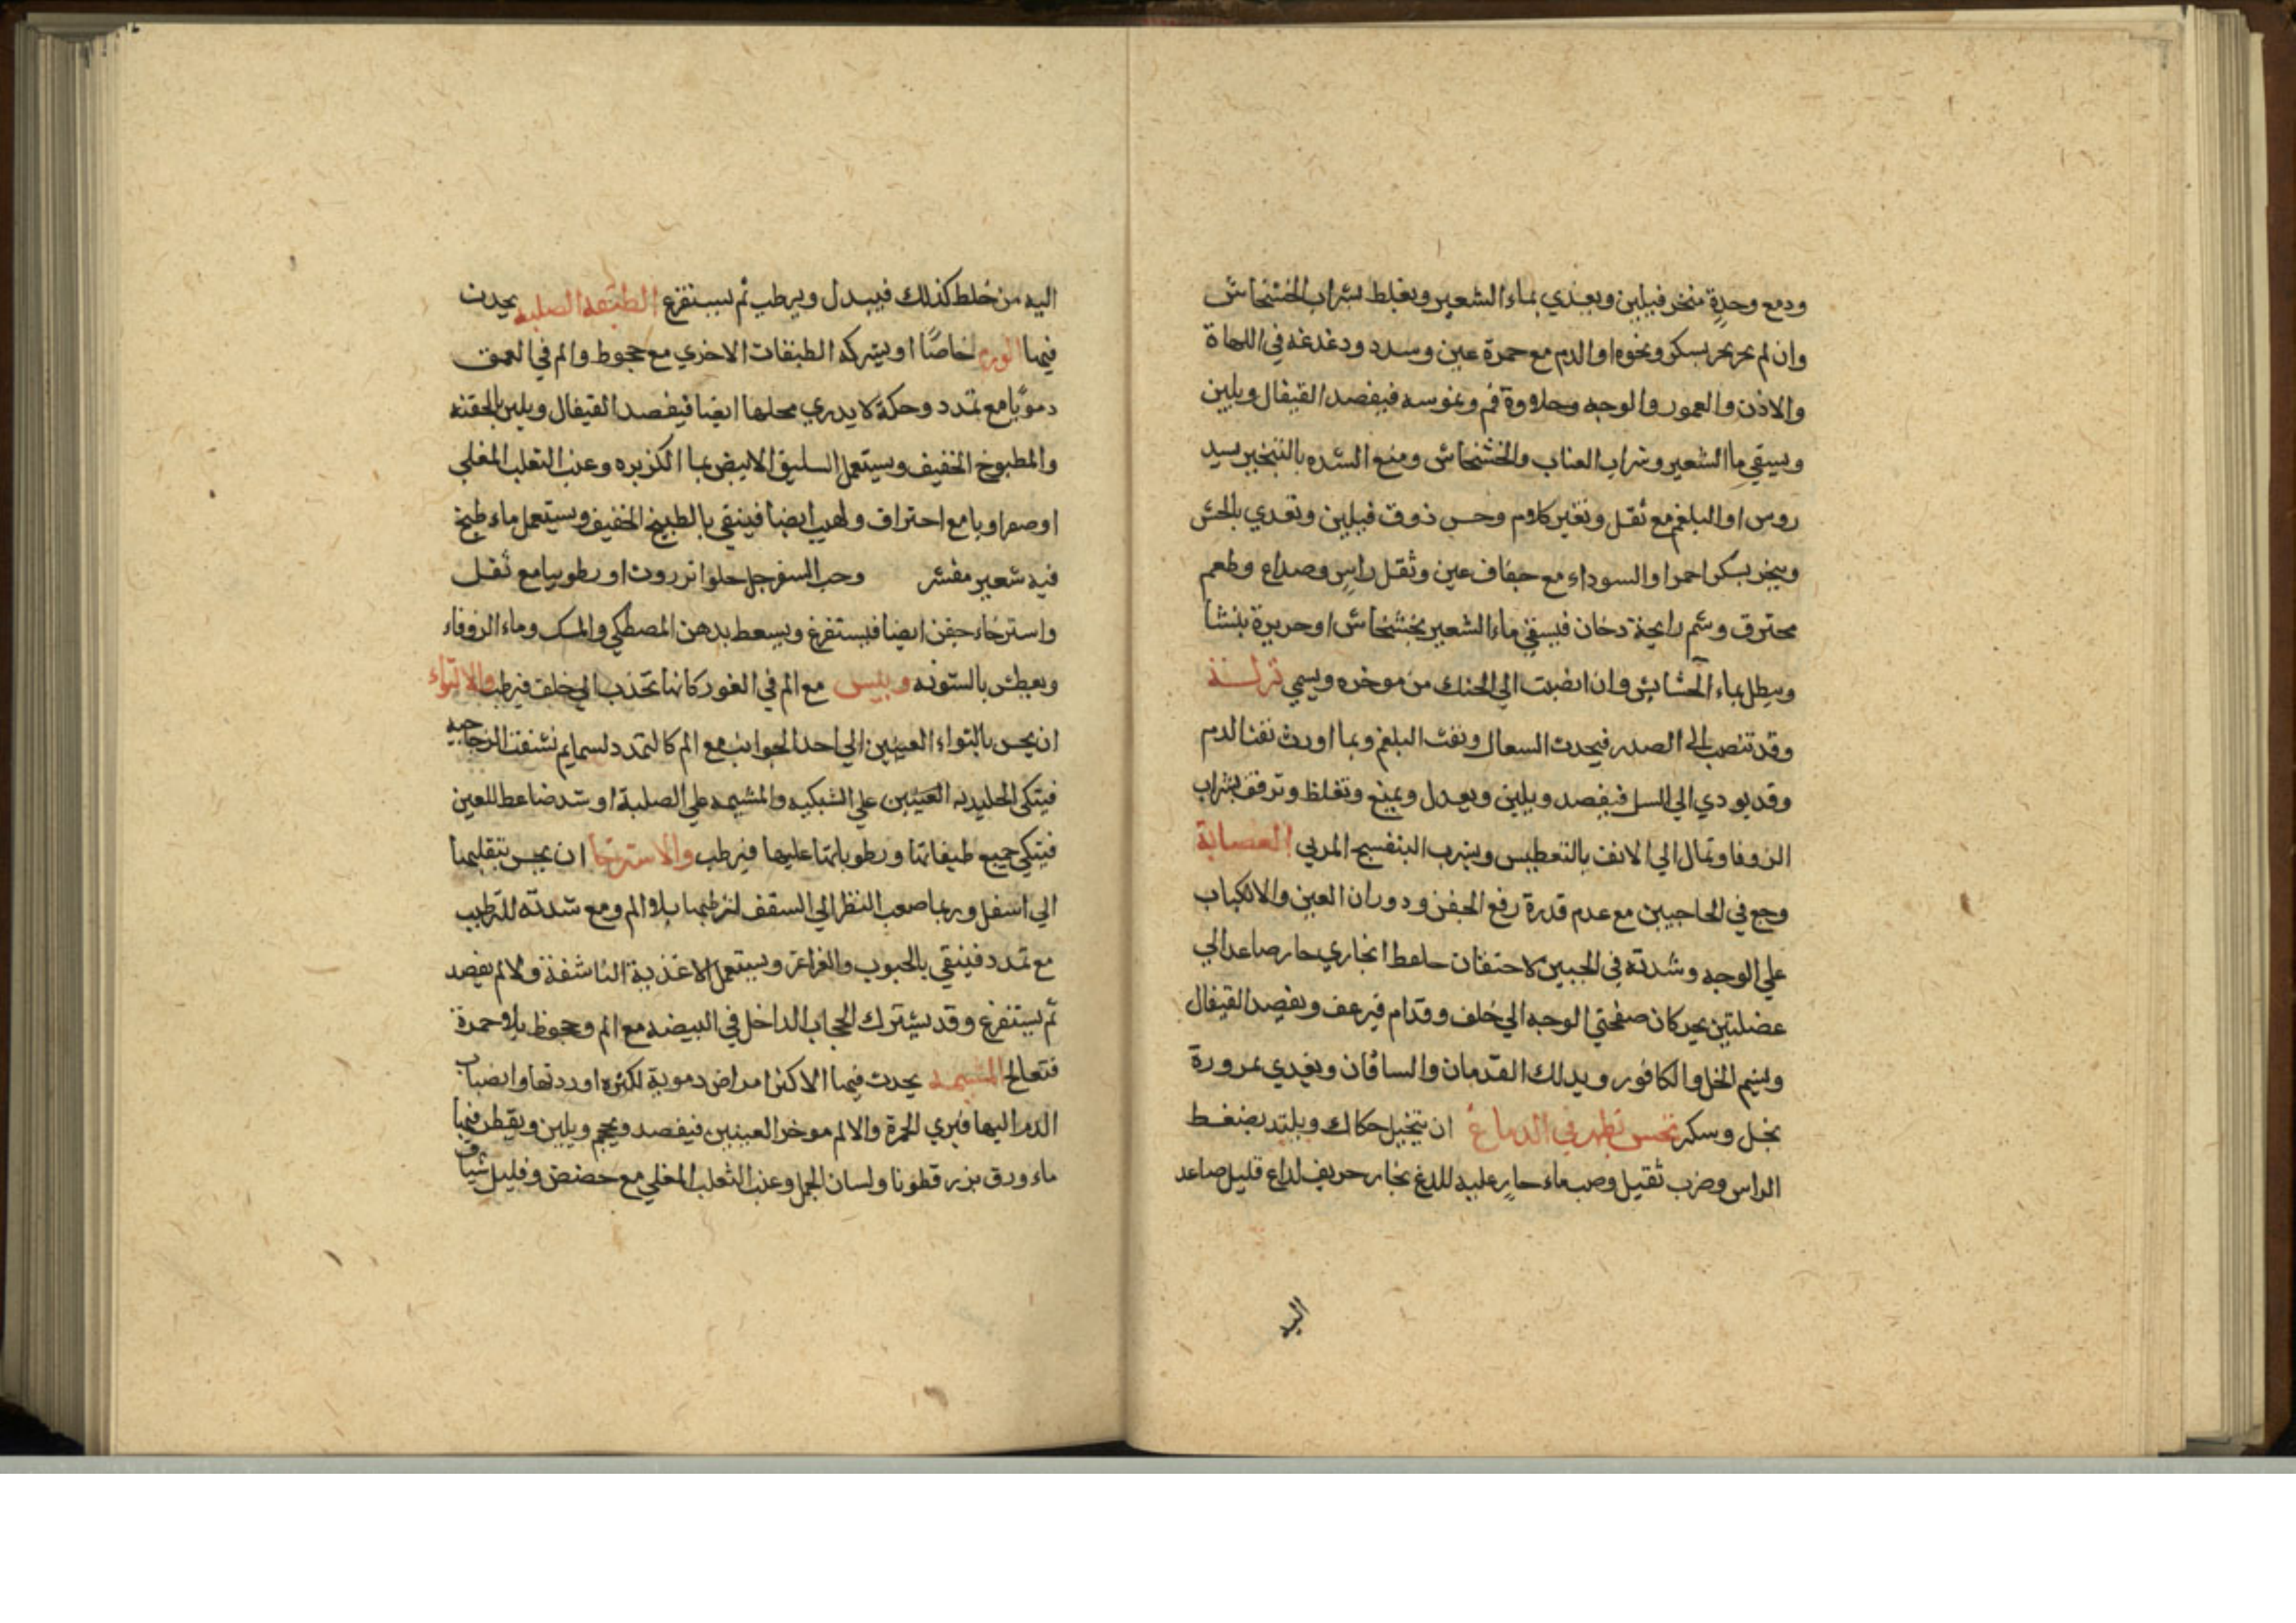 ودمع وحدة منخر فيلين ويغذي بماء الشعير ويغلظ بشراب الخشخاش
وان لم بسكر ونحوه او الدم مع حمرة عين وسدد ودغدغة في اللهاة
والاذن والعمور والوجه وحلاوة فم ونموسه فيفصد القيفال ويلين
ويسقي ما الشعير وشراب العناب والخشخاش ومنع الشده بالتبخير بسيد
روس او البلغم مع ثقل وتغير كلام وحس ذوق فيلين ويغدي بالحش
ويبخر بسكر احمر او السوداء مع جفاف عين وثقل راس وصداع وطعم
محترق وشم رايحة دخان فيسقي ماء الشعير بخشخاش او حريرة بنشا
وينطل بماء الحشايش وان انصبت الي الحنك من موخره ويسمي نزلة
وقد تنصب الى الصدر فيحدث السعال ونفث البلغم وبما اورث نفث الدم
وقد يودي الي السل فيفصد ويلين ويعدل ويمنع وتغلظ وترقق بشراب
الزوفا وتمال الي الانف بالتعطيس ويشرب البنفسج المربي العصابة
وجع في الحاجبين مع عدم قدرة رفع الجفن ودوران العين والانكباب
علي الوجه وشدته في الجبين لاحتقان بخاري حار صاعد الي
عضلتين يحركان صفحتي الوجه الي خلف وقدام فيرعف ويفصد القيفال
ويشم الخل والكافور ويدلك القدمان والساقان ويغدي بمزورة
بخل وسكر تحس تظهر في الدماغ ان يتخيل حكاك ويلتد بضغط
الراس وضرب ثقيل وصب ماء حار عليه للدغ بخار حريف لداع قليل صاعد
اليه
اليه من خلط كذلك فيبدل ويرطب ثم يستفرغ الطبقه الصلبه يحدث
فيها الورم خاصًا او يشركه الطبقات الاخري مع جحوظ والم في العمق
دمويًا مع تمدد وحكة لا يدري محلها ايضا فيفصد القيفال ويلين بالحقنه
والمطبوخ الخفيف ويستعمل السليق الابيض بما الكزبره وعنب الثعلب المغلي
او صفراويا مع احتراق ولهيب ايضا فينقي بالطبيخ الخفيف ويستعمل ماء طبخ
فيه شعير مقشر وحب السفرجل حلو انزروت او رطوبيا مع ثقل
واسترخاء جفن ايضا فيستفرغ ويسعط بدهن المصطكي والمسك وماء الزوفاء
ويعطش بالشونه ويبس مع الم في الغور كانها تجذب الي خلف فيرطب والالتواء
ان يحس بالتواء العينين الي احد الجوانب مع الم كالتمدد لسمايم نشفت الزجاجيه
فيتكي الجليديه العينين علي الشبكيه والمشيمه علي الصلبة او شد ضاعط للعين
فيتكي جميع طبقاتها ورطوباتها عليها فيرطب والاسترخا ان يحس بتقليبها
الي اسفل وربما صعب النظر الي السقف لترطبها بلا الم ومع شدته للترطيب
مع تمدد فينقي بالحبوب والغراغر ويستعمل الاغذية الناشفة وللالم يفصد
ثم يستفرغ وقد يشترك الحجاب الداخل في البيضه مع الم وجحوظ بلا حمرة
فتعالج المشيمه يحدث فيها الاكثر امراض دموية لكثرة اوردتها وانصباب
الدم اليها فيري الحمرة والالم موخر العينين فيفصد ويحجم ويلين ويقطر فيها
ماء ورق بزر قطونا ولسان الحمل وعنب الثعلب المغلي مع حضض وقليل شياف